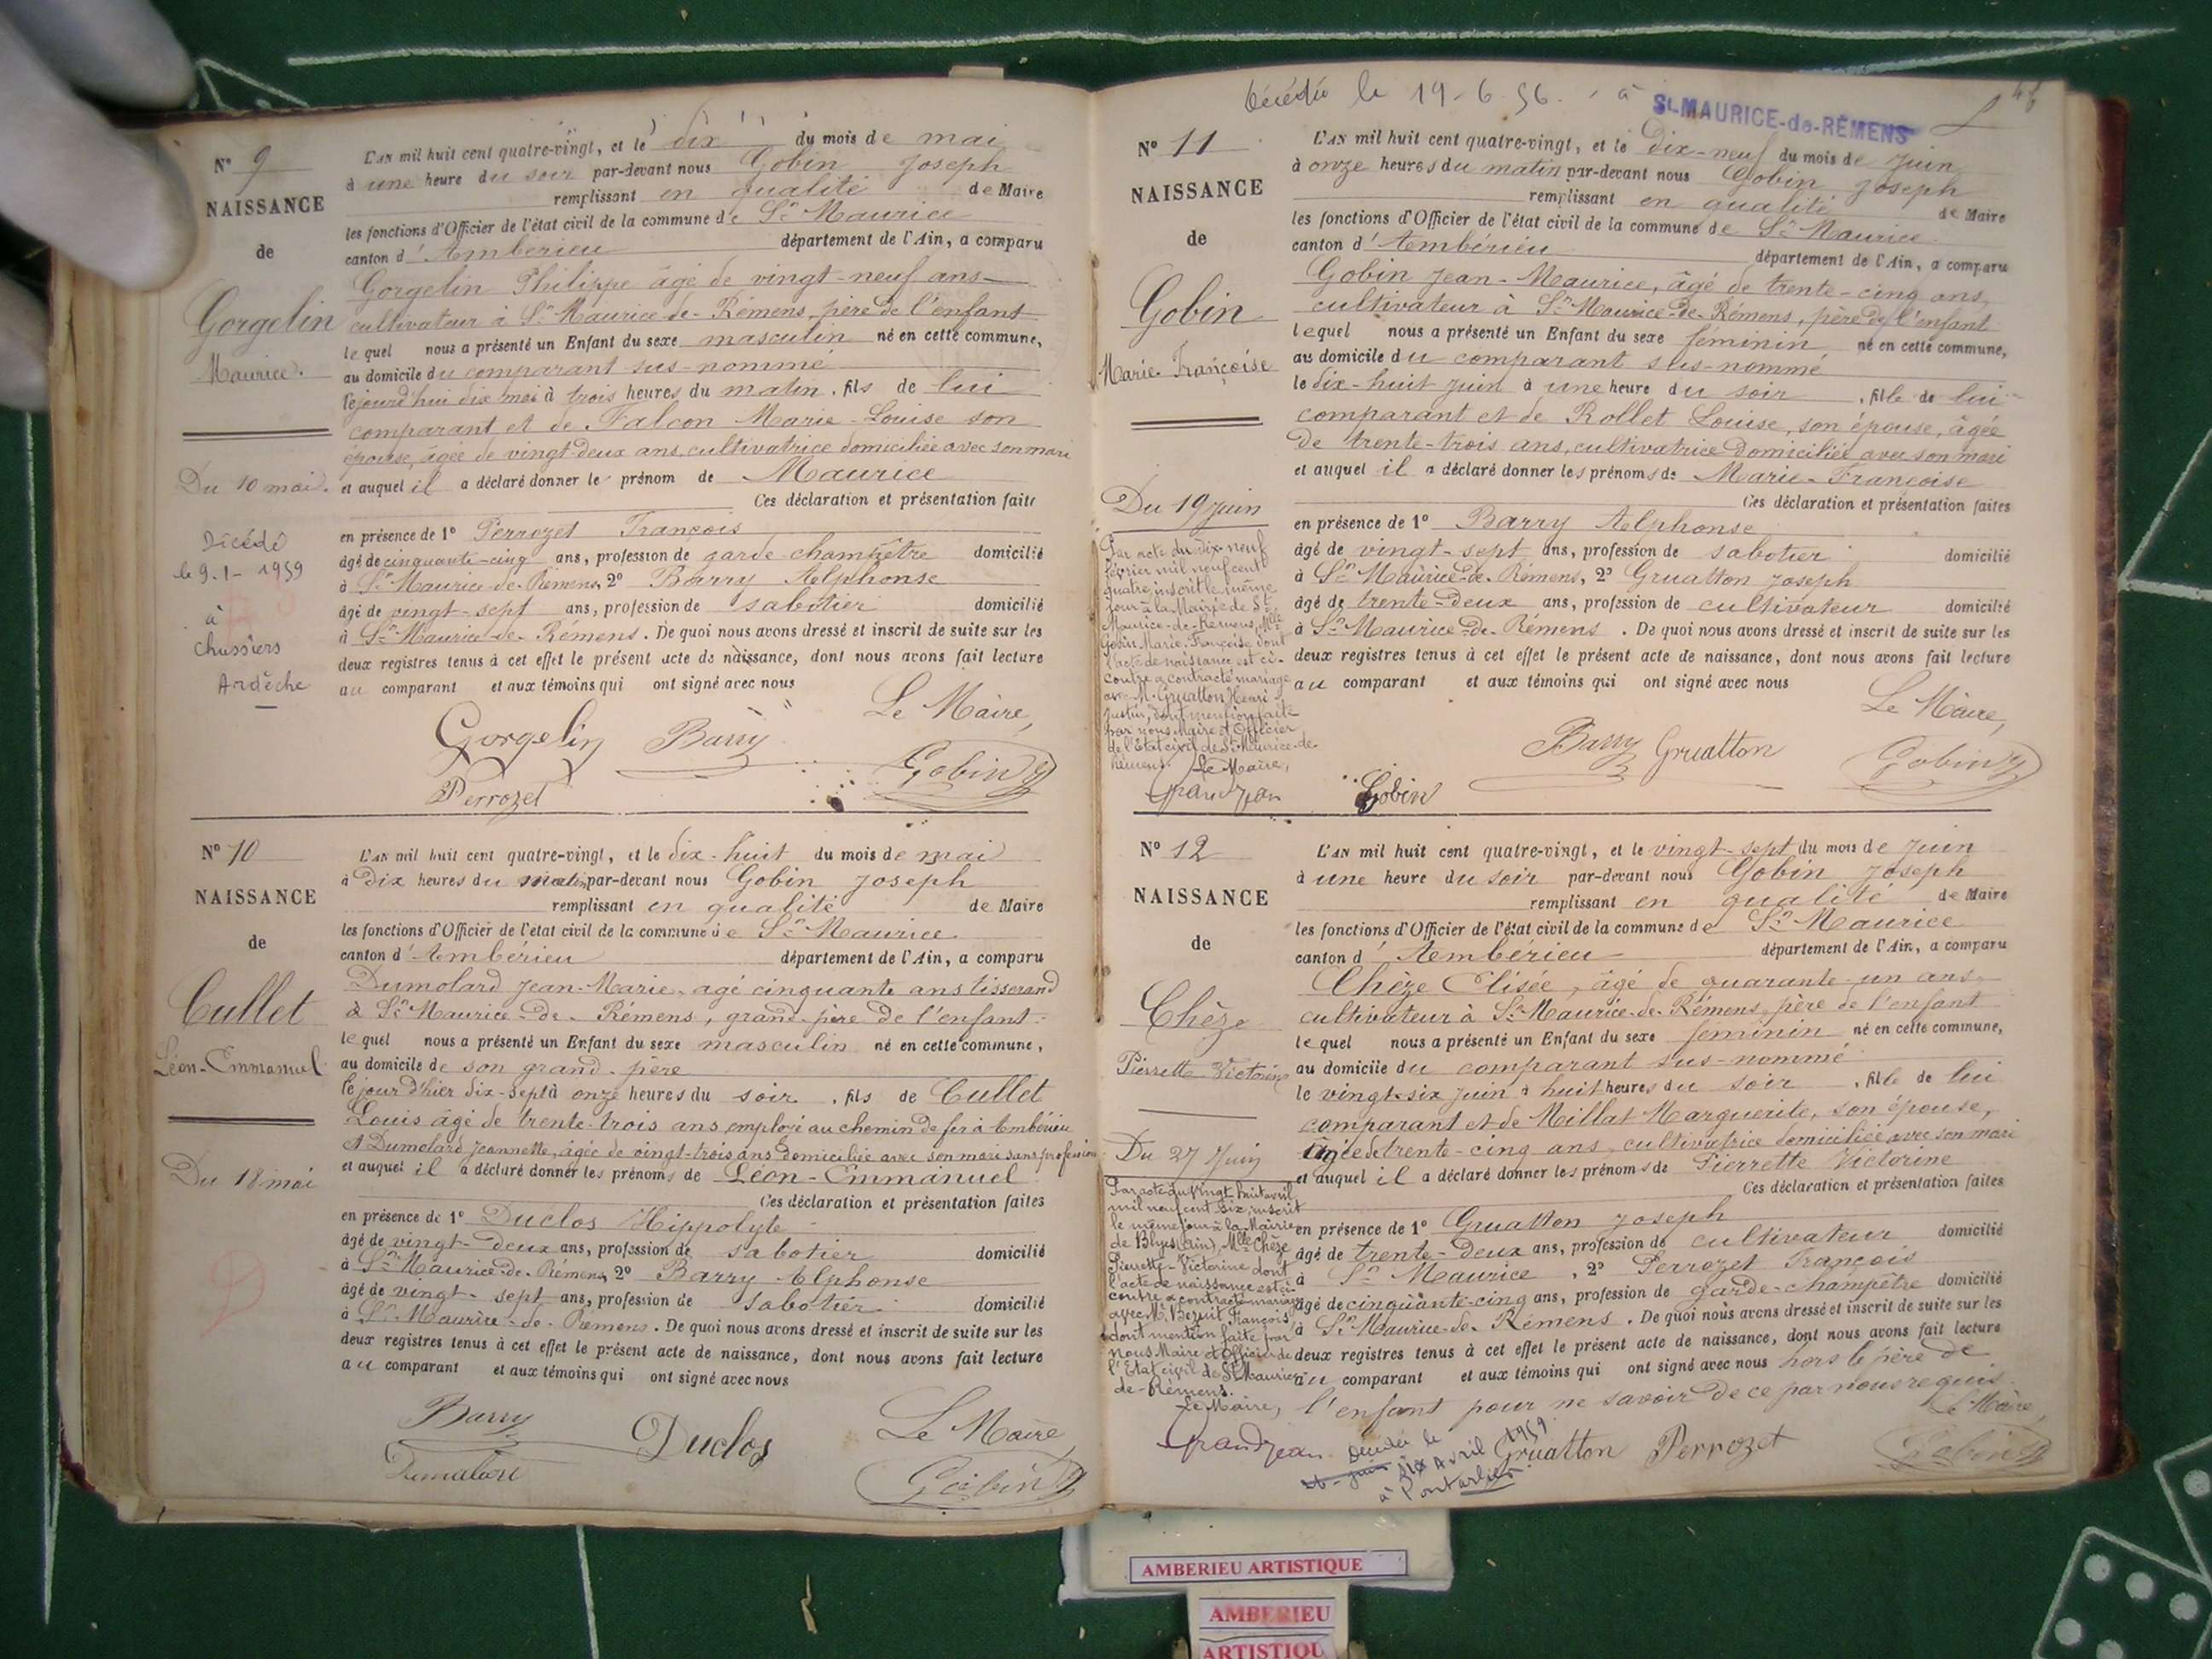 N° 9
NAISSANCE
de
Gorgelin
Maurice.
Du 10 mai.
Décédé
le 9-1-1959
à
Ardèche
L'AN mil huit cent quatre-vingt, et le dix du mois de mai
à une heure du soir par-devant nous Gobin Joseph
remplissant en qualité de Maire
les fonctions d'Officier de l'état civil de la commune de St Maurice
canton d'Ambérieu département de l'Ain, a comparu
Gorgelin Philippe âgé de vingt-neuf ans
cultivateur à St Maurice-de-Rémens, père de l'enfant
lequel nous a présenté un Enfant du sexe masculin né en cette commune,
au domicile du comparant sus-nommé
lejourd'hui dix mai à trois heures du matin, fils de lui
comparant et de Falcon Marie-Louise son
épouse, âgée de vingt-deux ans, cultivatrice domiciliée avec son mari
et auquel il a déclaré donner le prénom de Maurice
Ces déclaration et présentation faite
en présence de 1° Perrozet François
âgé de cinquante-cinq ans, profession de garde-champêtre domicilié
à St Maurice-de-Rémens, 2° Barry Alphonse
âgé de vingt-sept ans, profession de sabotier domicilié
à St Maurice-de-Rémens. De quoi nous avons dressé et inscrit de suite sur les
deux registres tenus à cet effet le présent acte de naissance, dont nous avons fait lecture
au comparant et aux témoins qui ont signé avec nous
Le Maire,
Gorgelin Barry Gobin
Perrozet
N° 10
NAISSANCE
de
Cullet
Léon-Emmanuel
Du 18 mai
L'AN mil huit cent quatre-vingt, et le dix-huit du mois de mai
à dix heures du matin par-devant nous Gobin Joseph
remplissant en qualité de Maire
les fonctions d'Officier de l'état civil de la commune de St Maurice
canton d'Ambérieu département de l'Ain, a comparu
Dumolard Jean-Marie, agé cinquante ans tisserand
à St Maurice-de-Rémens, grand-père de l'enfant
lequel nous a présenté un Enfant du sexe masculin né en cette commune,
au domicile de son grand-père
le jour d'hier dix-sept à onze heures du soir, fils de Cullet
Louis âgé de trente-trois ans employé au chemin de fer à Ambérieu
et Dumolard Jeannette, âgée de vingt-trois ans domiciliée avec son mari sans profession
et auquel il a déclaré donner les prénoms de Léon-Emmanuel
Ces déclaration et présentation faites
en présence de 1° Duclos Hippolyte
âgé de vingt-deux ans, profession de sabotier domicilié
à St Maurice-de-Rémens, 2° Barry Alphonse
âgé de vingt-sept ans, profession de sabotier domicilié
à St Maurice-de-Rémens. De quoi nous avons dressé et inscrit de suite sur les
deux registres tenus à cet effet le présent acte de naissance, dont nous avons fait lecture
au comparant et aux témoins qui ont signé avec nous
Barry Duclos Le Maire,
Dumolard Gobin
Décédée le 19-6-56 à St-MAURICE-de-RÉMENS
N° 11
NAISSANCE
de
Gobin
Marie-Françoise
Du 19 juin
Par acte du dix-neuf
février mil neuf cent
quatre, inscrit le même
jour à la Mairie de St
Maurice-de-Rémens, Mlle
Gobin Marie-Françoise dont
l'acte de naissance est ci-
contre a contracté mariage
avec M. Gruatton Henri
Justin, dont mention faite
par nous Maire et Officier
de l'état civil de St-Maurice-de-
Rémens. Le Maire,
Grandjean
L'AN mil huit cent quatre-vingt, et le dix-neuf du mois de juin
à onze heures du matin par-devant nous Gobin Joseph
remplissant en qualité de Maire
les fonctions d'Officier de l'état civil de la commune de St Maurice
canton d'Ambérieu département de l'Ain, a comparu
Gobin Jean-Maurice, âgé de trente-cinq ans,
cultivateur à St Maurice-de-Rémens, père de l'enfant
lequel nous a présenté un Enfant du sexe féminin né en cette commune,
au domicile du comparant sus-nommé
le dix-huit juin à une heure du soir, fille de lui
comparant et de Rollet Louise, son épouse, âgée
de trente-trois ans, cultivatrice domiciliée avec son mari
et auquel il a déclaré donner les prénoms de Marie-Françoise
Ces déclaration et présentation faites
en présence de 1° Barry Alphonse
âgé de vingt-sept ans, profession de sabotier domicilié
à St Maurice-de-Rémens, 2° Gruatton Joseph
âgé de trente-deux ans, profession de cultivateur domicilié
à St Maurice-de-Rémens. De quoi nous avons dressé et inscrit de suite sur les
deux registres tenus à cet effet le présent acte de naissance, dont nous avons fait lecture
au comparant et aux témoins qui ont signé avec nous
Le Maire,
Barry Gruatton Gobin
Gobin
N° 12
NAISSANCE
de
Chèze
Pierrette Victorine
Du 27 Juin
Par acte du vingt huit avril
mil neuf cent six, inscrit
le même jour à la Mairie
de Blyes (Ain), Mlle Chèze
Pierrette-Victorine dont
l'acte de naissance est ci-
contre a contracté mariage
avec M. François,
dont mention faite par
nous Maire et Officier de
l'Etat civil de St Maurice
de-Rémens.
Le Maire,
Grandjean
L'AN mil huit cent quatre-vingt, et le vingt-sept du mois de juin
à une heure du soir par-devant nous Gobin Joseph
remplissant en qualité de Maire
les fonctions d'Officier de l'état civil de la commune de St Maurice
canton d'Ambérieu département de l'Ain, a comparu
Chèze Elisée, âgé de quarante-un ans
cultivateur à St Maurice-de-Rémens, père de l'enfant
lequel nous a présenté un Enfant du sexe féminin né en cette commune,
au domicile du comparant sus-nommé
le vingt-six juin à huit heures du soir, fille de lui
comparant et de Millat Marguerite, son épouse,
âgée de trente-cinq ans, cultivatrice domiciliée avec son mari
et auquel il a déclaré donner les prénoms de Pierrette Victorine
Ces déclaration et présentation faites
en présence de 1° Gruatton Joseph
âgé de trente-deux ans, profession de cultivateur domicilié
à St Maurice, 2° Perrozet François
âgé de cinquante-cinq ans, profession de garde-champêtre domicilié
à St Maurice-de-Rémens. De quoi nous avons dressé et inscrit de suite sur les
deux registres tenus à cet effet le présent acte de naissance, dont nous avons fait lecture
au comparant et aux témoins qui ont signé avec nous hors le père de
l'enfant pour ne savoir de ce par nous requis
Le Maire,
Gruatton Perrozet Gobin
Décédée le
dix Avril 1959
à Pontarlier
AMBERIEU ARTISTIQUE
AMBERIEU
ARTISTIQU